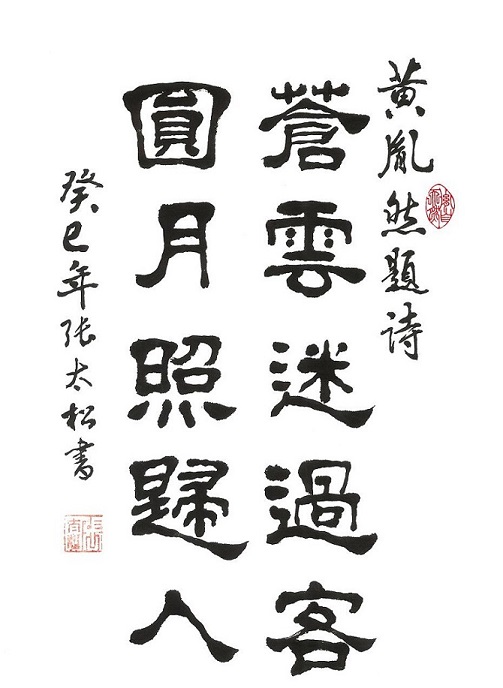 黄胤然题诗
蒼雲迷過客
圓月照歸人
癸巳年张太松书